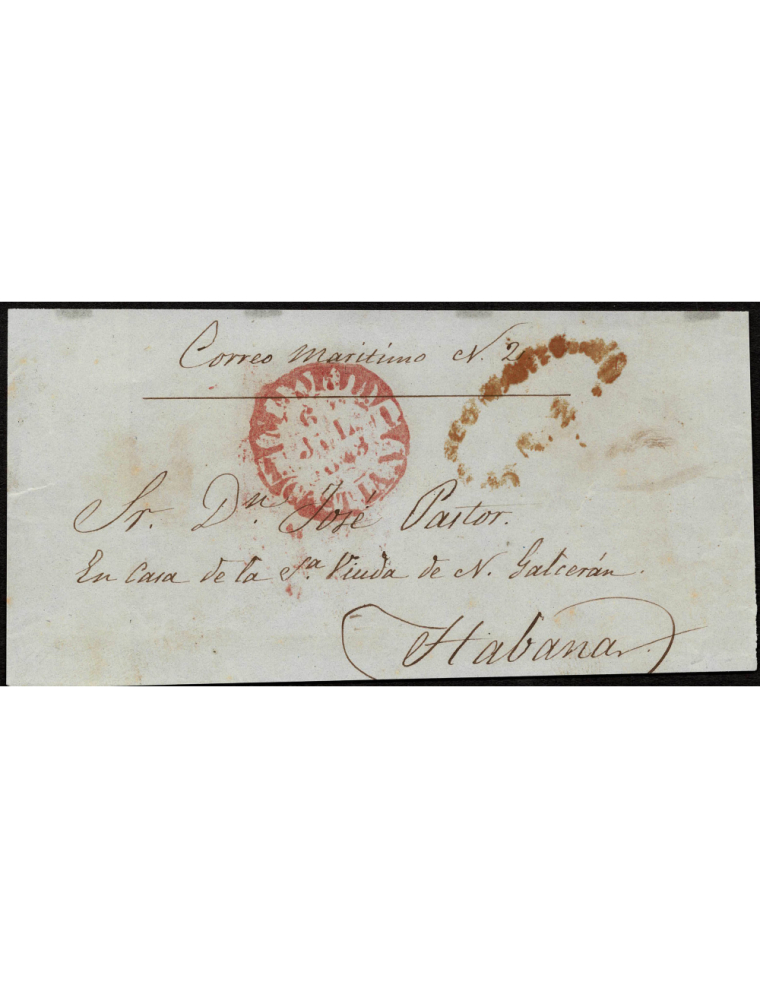 Correo Maritimo N. 2
6
JUL
1843
Sr. Dn. José Pastor.
En Casa de la Sa. Viuda de N. Galcerán.
Habana.